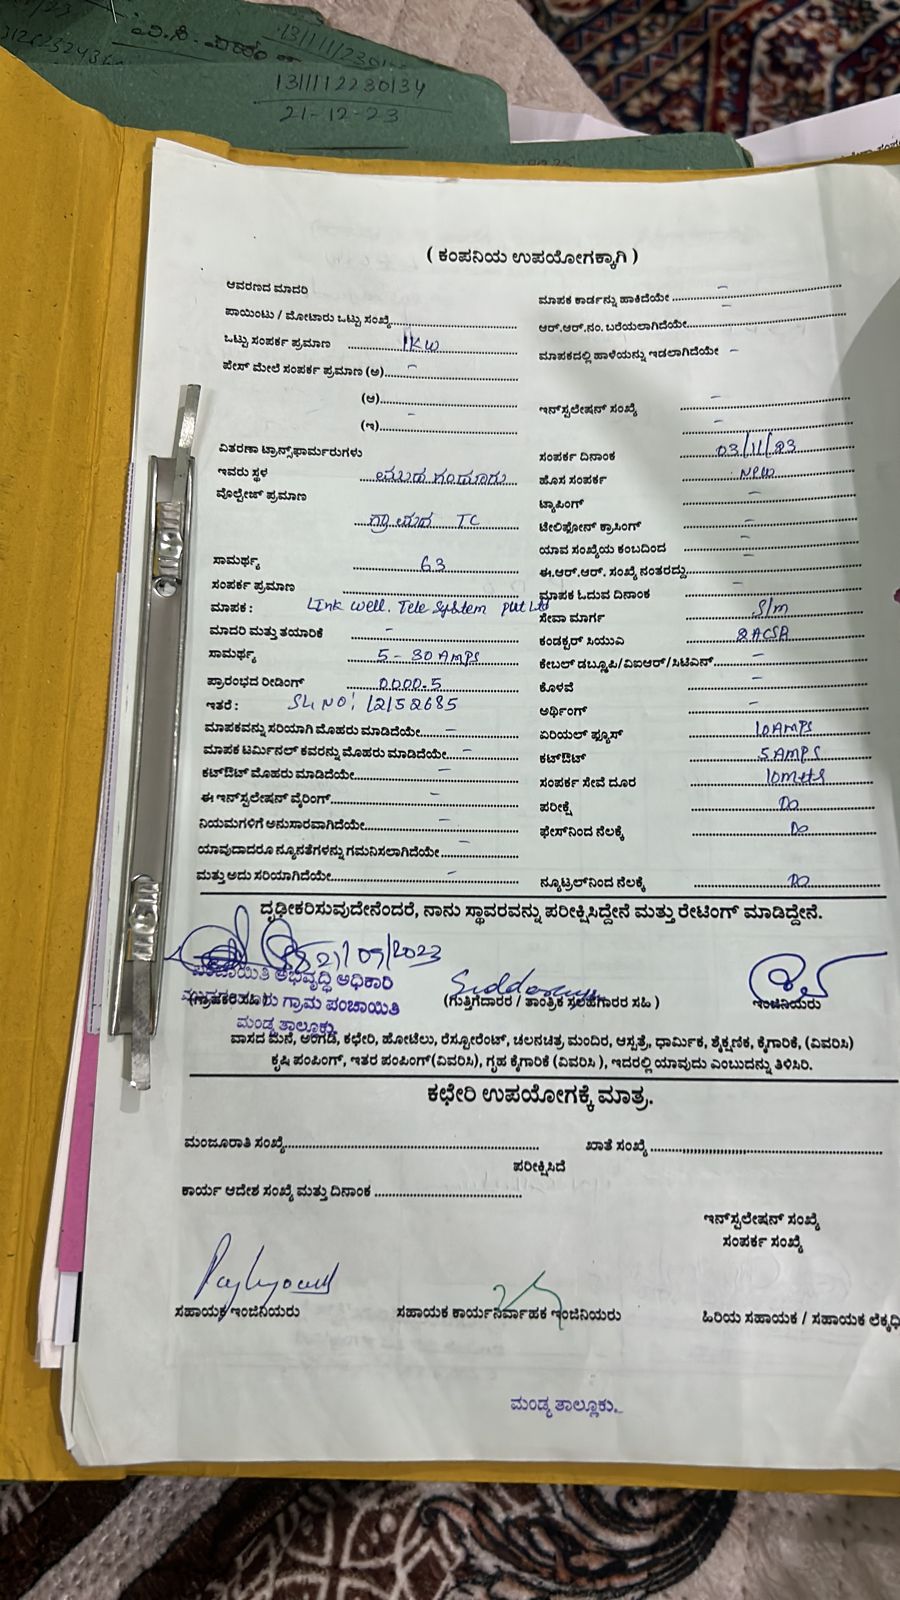 13111230
13/11/12230134
21-12-23
( ಕಂಪನಿಯ ಉಪಯೋಗಕ್ಕಾಗಿ )
ಆವರಣದ ಮಾದರಿ
ಮಾಪಕ ಕಾರ್ಡನ್ನು ಹಾಕಿದೆಯೇ
ಪಾಯಿಂಟು / ಮೋಟಾರು ಒಟ್ಟು ಸಂಖ್ಯೆ
ಆರ್.ಆರ್.ನಂ. ಬರೆಯಲಾಗಿದೆಯೇ
ಒಟ್ಟು ಸಂಪರ್ಕ ಪ್ರಮಾಣ 1KW
ಮಾಪಕದಲ್ಲಿ ಹಾಳೆಯನ್ನು ಇಡಲಾಗಿದೆಯೇ –
ಪೇಸ್ ಮೇಲೆ ಸಂಪರ್ಕ ಪ್ರಮಾಣ (ಅ) –
(ಆ)
ಇನ್‌ಸ್ಟಲೇಷನ್ ಸಂಖ್ಯೆ –
(ಇ) –
ವಿತರಣಾ ಟ್ರಾನ್ಸ್‌ಫಾರ್ಮರುಗಳು
ಸಂಪರ್ಕ ದಿನಾಂಕ 03/11/23
ಇವರು ಸ್ಥಳ
ಹೊಸ ಸಂಪರ್ಕ New
ವೋಲ್ಟೇಜ್ ಪ್ರಮಾಣ
ಟ್ಯಾಪಿಂಗ್ –
ಗ್ರಾಮದ TC
ಟೆಲಿಫೋನ್ ಕ್ರಾಸಿಂಗ್ –
ಯಾವ ಸಂಖ್ಯೆಯ ಕಂಬದಿಂದ –
ಸಾಮರ್ಥ್ಯ 63
ಈ.ಆರ್.ಆರ್. ಸಂಖ್ಯೆ ನಂತರದ್ದು
ಸಂಪರ್ಕ ಪ್ರಮಾಣ
ಮಾಪಕ ಓದುವ ದಿನಾಂಕ –
ಮಾಪಕ : Link Well. Tele System pvt Ltd
ಸೇವಾ ಮಾರ್ಗ S/m
ಮಾದರಿ ಮತ್ತು ತಯಾರಿಕೆ –
ಕಂಡಕ್ಟರ್ ಸಿಯುಎ 2ACSR
ಸಾಮರ್ಥ್ಯ 5-30 AMPS
ಕೇಬಲ್ ಡಬ್ಲೂಪಿ/ವಿಐಆರ್/ಸಿಟಿಎನ್ –
ಪ್ರಾರಂಭದ ರೀಡಿಂಗ್ 0000.5
ಕೊಳವೆ –
ಇತರೆ : SL NO: 12152685
ಅರ್ಥಿಂಗ್ –
ಮಾಪಕವನ್ನು ಸರಿಯಾಗಿ ಮೊಹರು ಮಾಡಿದೆಯೇ –
ಏರಿಯಲ್ ಫ್ಯೂಸ್ 10AMPS
ಮಾಪಕ ಟರ್ಮಿನಲ್ ಕವರನ್ನು ಮೊಹರು ಮಾಡಿದೆಯೇ –
ಕಟ್‌ಔಟ್ 5 AMPS
ಕಟ್‌ಔಟ್ ಮೊಹರು ಮಾಡಿದೆಯೇ –
ಸಂಪರ್ಕ ಸೇವೆ ದೂರ 10mtts
ಈ ಇನ್‌ಸ್ಟಲೇಷನ್ ವೈರಿಂಗ್ –
ಪರೀಕ್ಷೆ Do
ನಿಯಮಗಳಿಗೆ ಅನುಸಾರವಾಗಿದೆಯೇ –
ಫೇಸ್‌ನಿಂದ ನೆಲಕ್ಕೆ Do
ಯಾವುದಾದರೂ ನ್ಯೂನತೆಗಳನ್ನು ಗಮನಿಸಲಾಗಿದೆಯೇ –
ಮತ್ತು ಅದು ಸರಿಯಾಗಿದೆಯೇ –
ನ್ಯೂಟ್ರಲ್‌ನಿಂದ ನೆಲಕ್ಕೆ Do
ದೃಢೀಕರಿಸುವುದೇನೆಂದರೆ, ನಾನು ಸ್ಥಾವರವನ್ನು ಪರೀಕ್ಷಿಸಿದ್ದೇನೆ ಮತ್ತು ರೇಟಿಂಗ್ ಮಾಡಿದ್ದೇನೆ.
21/09/2023
ಪಂಚಾಯಿತಿ ಅಭಿವೃದ್ಧಿ ಅಧಿಕಾರಿ
(ಗ್ರಾಹಕರ ಸಹಿ) ಗ್ರಾಮ ಪಂಚಾಯಿತಿ
(ಗುತ್ತಿಗೆದಾರರ / ತಾಂತ್ರಿಕ ಸಲಹೆಗಾರರ ಸಹಿ )
ಇಂಜಿನಿಯರು
ಮಂಡ್ಯ ತಾಲ್ಲೂಕು.
ವಾಸದ ಮನೆ, ಅಂಗಡಿ, ಕಛೇರಿ, ಹೋಟೆಲು, ರೆಸ್ಟೋರೆಂಟ್, ಚಲನಚಿತ್ರ ಮಂದಿರ, ಆಸ್ಪತ್ರೆ, ಧಾರ್ಮಿಕ, ಶೈಕ್ಷಣಿಕ, ಕೈಗಾರಿಕೆ, (ವಿವರಿಸಿ)
ಕೃಷಿ ಪಂಪಿಂಗ್, ಇತರ ಪಂಪಿಂಗ್(ವಿವರಿಸಿ), ಗೃಹ ಕೈಗಾರಿಕೆ (ವಿವರಿಸಿ), ಇದರಲ್ಲಿ ಯಾವುದು ಎಂಬುದನ್ನು ತಿಳಿಸಿರಿ.
ಕಛೇರಿ ಉಪಯೋಗಕ್ಕೆ ಮಾತ್ರ.
ಮಂಜೂರಾತಿ ಸಂಖ್ಯೆ
ಖಾತೆ ಸಂಖ್ಯೆ
ಪರೀಕ್ಷಿಸಿದೆ
ಕಾರ್ಯ ಆದೇಶ ಸಂಖ್ಯೆ ಮತ್ತು ದಿನಾಂಕ
ಇನ್‌ಸ್ಟಲೇಷನ್ ಸಂಖ್ಯೆ
ಸಂಪರ್ಕ ಸಂಖ್ಯೆ
ಸಹಾಯಕ ಇಂಜಿನಿಯರು
ಸಹಾಯಕ ಕಾರ್ಯನಿರ್ವಾಹಕ ಇಂಜಿನಿಯರು
ಹಿರಿಯ ಸಹಾಯಕ / ಸಹಾಯಕ ಲೆಕ್ಕಧಿ
ಮಂಡ್ಯ ತಾಲ್ಲೂಕು.